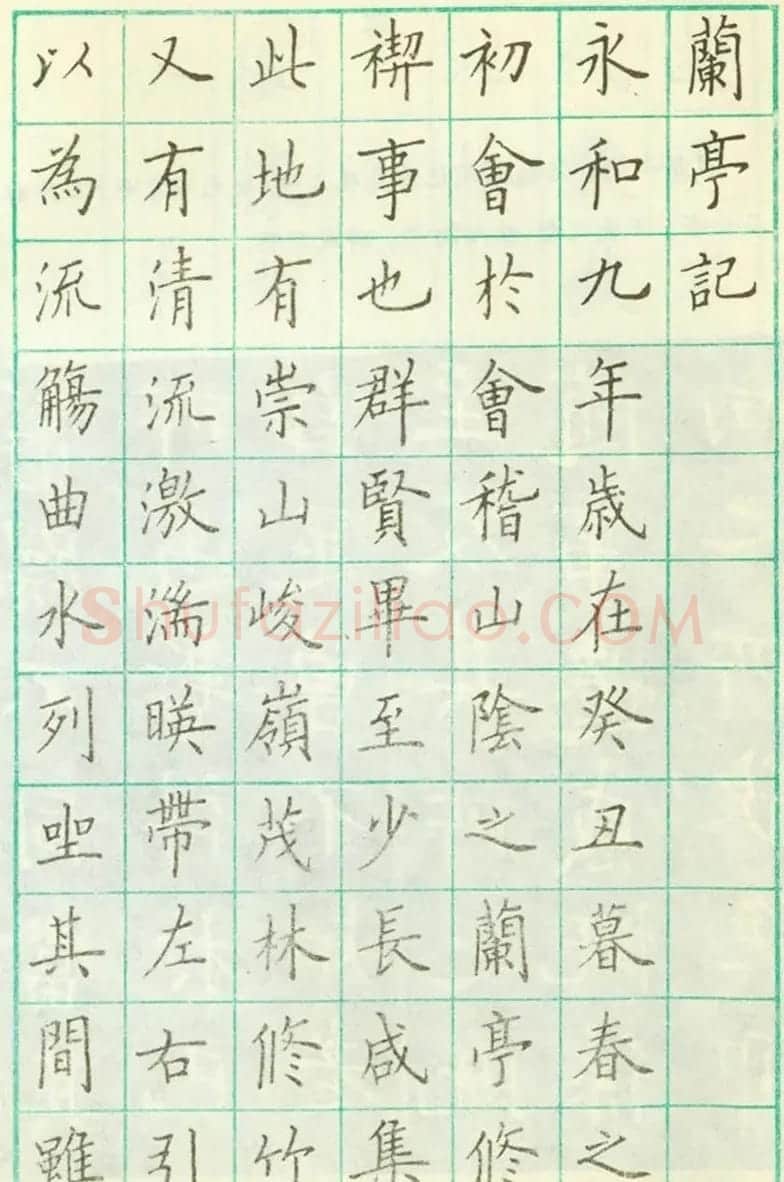 蘭亭記
永和九年歲在癸丑暮春之
初會於會稽山陰之蘭亭修
禊事也群賢畢至少長咸集
此地有崇山峻嶺茂林修竹
又有清流激湍暎帶左右引
以為流觴曲水列坐其間雖
Shufaziliao.COM